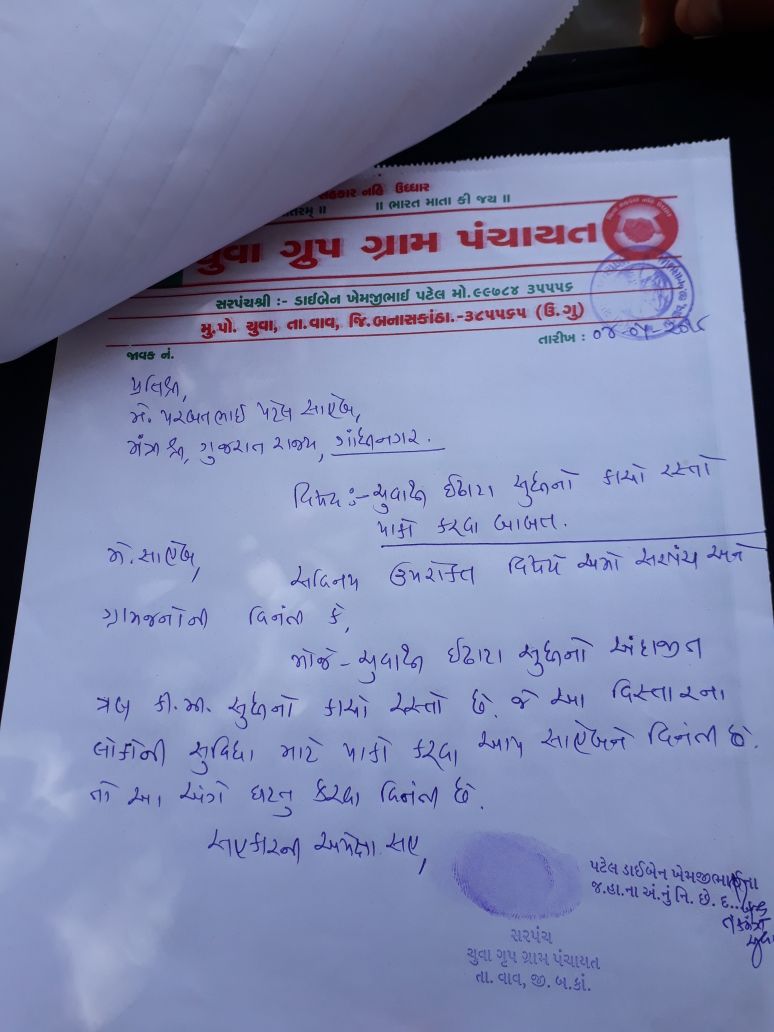 સહકાર નહિ ઉધ્ધાર
॥ ભારત માતા કી જય ॥
ચુવા ગ્રુપ ગ્રામ પંચાયત
સરપંચશ્રી :- ડાઈબેન ખેમજીભાઈ પટેલ મો.૯૯૭૮૪ ૩૫૫૫૬
મુ.પો. ચુવા, તા.વાવ, જિ.બનાસકાંઠા.-૩૮૫૫૬૫ (ઉ.ગુ)
તારીખ :
જાવક નં.
પ્રતિશ્રી,
મે. પરબતભાઈ પટેલ સાહેબ,
મંત્રી શ્રી, ગુજરાત રાજ્ય, ગાંધીનગર.
વિષય :- ચુવાથી ઈઢાટા સુધીનો કાચો રસ્તો
પાકો કરવા બાબત.
મે. સાહેબ,
સવિનય ઉપરોક્ત વિષયે અમો સરપંચ અને
ગ્રામજનોની વિનંતી કે,
મોજે - ચુવાથી ઈઢાટા સુધીનો અંદાજીત
ત્રણ કી.મી. સુધીનો કાચો રસ્તો છે. જે આ વિસ્તારના
લોકોની સુવિધા માટે પાકો કરવા આપ સાહેબને વિનંતી છે.
તો આ અંગે ઘટતુ કરવા વિનંતી છે.
સહકારની અપેક્ષા સહ,
પટેલ ડાઈબેન ખેમજીભાઈના
જ.હા.ના અં.નું નિ. છે. દ.
સરપંચ
ચુવા ગૃપ ગ્રામ પંચાયત
તા. વાવ, જી. બ.કાં.